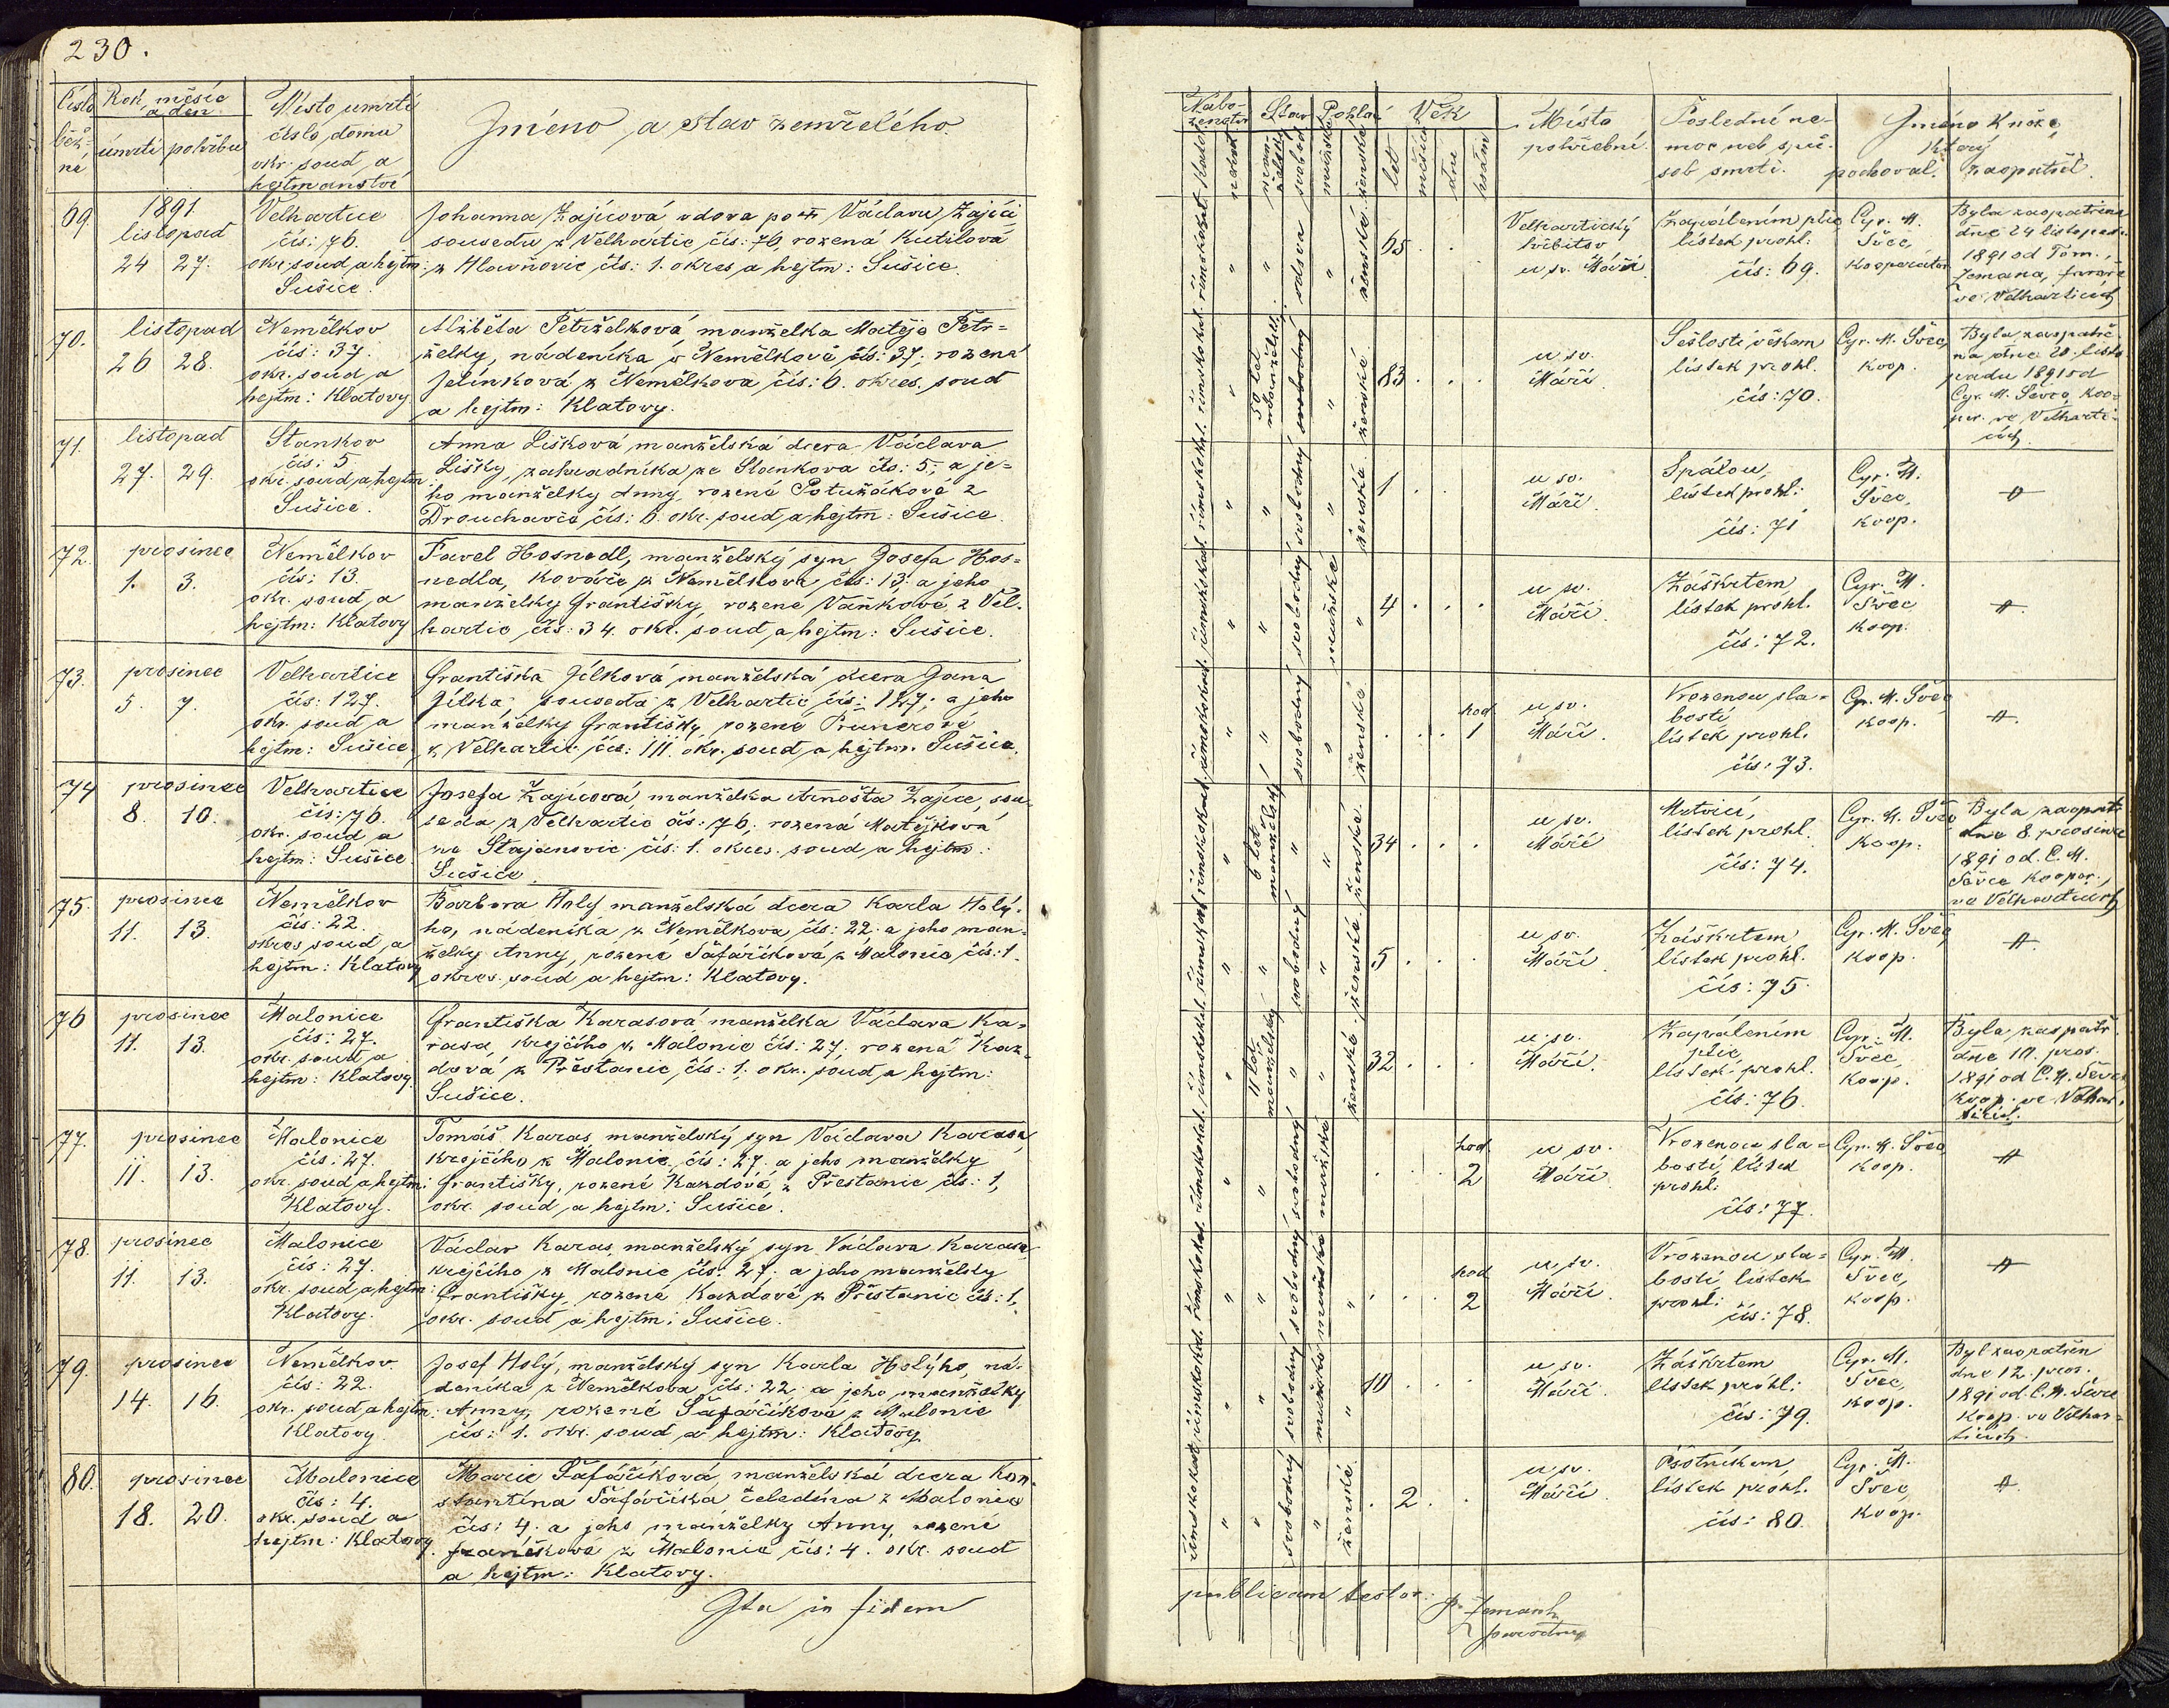 230.
Číslo běž-né
Rok, měsíc a den
úmrtí pohřbu
Místo úmrtí
číslo domu
okr. soud a
hejtmanství
Jméno a stav zemřelého.
69.
1891
listopad
24 27.
Velhartice
čís: 76.
okr. soud a hejtm:
Sušice.
Johanna Zajícová vdova po † Václavu Zajíci
sousedu z Velhartic čís: 76, rozená Kutilová
z Hlavňovic čís: 1. okres a hejtm: Sušice.
70.
listopad
26 28.
Nemělkov
čís: 37.
okr. soud a
hejtm: Klatovy.
Alžběta Petrželková manželka Matěje Petr=
želky, nádeníka v Nemělkově, čís: 37; rozená
Jelínková z Nemělkova čís: 6. okres. soud
a hejtm: Klatovy.
71.
listopad
27. 29.
Stankov
čís: 5
okr. soud a hejtm:
Sušice.
Anna Lišková manželská dcera Václava
Lišky, zahradníka ze Stankova čís: 5; a je=
ho manželky Anny, rozené Potužákové z
Drouhavče čís: 6. okr. soud a hejtm: Sušice.
72.
prosinec
1. 3.
Nemělkov
čís: 13.
okr. soud a
hejtm: Klatovy
Pavel Hosnedl, manželský syn Josefa Hos=
nedla, kováře z Nemělkova čís: 13; a jeho
manželky Františky, rozené Vaňkové z Vel.
hartic čís: 34. okr. soud a hejtm: Sušice.
73.
prosinec
5. 7.
Velhartice
čís: 127.
okr. soud a
hejtm: Sušice.
Františka Jílková manželská dcera Jana
Jílka, souseda z Velhartic čís: 127; a jeho
manželky Františky, rozené Prunerové
z Velhartic čís: 111. okr. soud a hejtm. Sušice.
74
prosinec
8. 10.
Velhartice
čís: 76.
okr. soud a
hejtm: Sušice.
Josefa Zajícová, manželka Arnošta Zajíce, sou-
seda z Velhartic čís: 76; rozená Matějková
ze Stajanovic čís: 1. okres. soud a hejtm:
Sušice.
75.
prosinec
11. 13.
Nemělkov
čís: 22.
okres soud a
hejtm: Klatovy
Barbora Holý manželská dcera Karla Holý-
ho, nádeníka z Nemělkova čís: 22. a jeho man-
želky Anny, rozené Šafaříkové z Malonic čís: 1.
okres. soud a hejtm: Klatovy.
76
prosinec
11. 13.
Malonice
čís: 27.
okr. soud a
hejtm: Klatovy.
Františka Karasová manželka Václava Ka=
rasa, krejčího z Malonic čís: 27; rozená Kaz-
dová z Přestanic, čís: 1; okr. soud a hejtm:
Sušice.
77.
prosinec
11. 13.
Malonice
čís: 27.
okr. soud a hejtm:
Klatovy.
Tomáš Karas, manželský syn Václava Karasa,
krejčího z Malonic, čís: 27. a jeho manželky
Františky, rozené Kazdové z Přestanic čís: 1,
okr. soud a hejtm: Sušice.
78.
prosinec
11. 13.
Malonice
čís: 27.
okr. soud a hejtm:
Klatovy.
Václav Karas, manželský syn Václava Karasa,
krejčího z Malonic čís: 27; a jeho manželky
Františky, rozené Kazdové z Přestanic čís: 1,
okr. soud a hejtm: Sušice.
79.
prosinec
14. 16.
Nemělkov
čís: 22.
okr. soud a hejtm:
Klatovy
Josef Holý, manželský syn Karla Holýho, ná-
deníka z Nemělkova čís: 22; a jeho manželky
Anny, rozené Šafaříkové z Malonic
čís: 1. okr. soud a hejtm: Klatovy
80.
prosinec
18. 20.
Malonice
čís: 4.
okr. soud a
hejtm: Klatovy.
Marie Šafaříková, manželská dcera Kon-
stantina Šafaříka čeledína z Malonic
čís: 4. a jeho manželky Anny, rozené
z Malonic čís: 4. okr. soud
a hejtm: Klatovy.
Ita in fidem
Nábo-ženství
Stav
Pohlaví
Věk
let
měsíců
dne
hodin
Místo
pohřební.
Poslední ne-
moc neb spů-
sob smrti.
Jméno Kněze,
který
pochoval. zaopatřil.
vdova
ženské
65 . .
Velhartický
hřbitov
u sv. Máří
Zapálením plic
lístek prohl:
čís: 69.
Cyr. M.
Švec,
kooperátor
Byla zaopatřena
dne 24 listopadu
1891 od Tom.
Zemana, faráře
ve Velharticích
50 let
ženské
83 . . .
u sv.
Máří.
Sešlostí věkem
lístek prohl.
čís: 70.
Cyr. M. Švec,
koop.
Byla zaopatře-
na dne 20. listo-
padu 1891 od
Cyr. M. Ševce, koo-
per. ve Velharti-
cích
svobodný
ženské
1 . .
u sv.
Máří.
Spálou,
lístek prohl:
čís: 71
Cyr. M.
Švec,
koop.
svobodný
mužské
4 . . .
u sv.
Máří.
Záškrtem,
lístek prohl.
čís: 72.
Cyr. M.
Švec
koop.
svobodný
ženské
hod.
. . . 1
u sv.
Máří.
Vrozenou sla-
bostí
lístek prohl.
čís: 73.
Cyr. M. Švec
koop.
6 let
manželský
ženské
34 . . .
u sv.
Máří
Mrtvicí,
lístek prohl.
čís: 74.
Cyr. M. Švec
koop.
Byla zaopatř.
dne 8 prosince
1891 od C. M.
Ševce kooper.,
ve Velharticích
svobodný
ženské
5 . . .
u sv.
Máří.
Záškrtem
lístek prohl.
čís: 75.
Cyr. M. Švec,
koop.
11 let
manželský
ženské
32 . . .
u sv.
Máří.
Zapálením
plic,
lístek prohl.
čís: 76.
Cyr. M.
Švec
koop.
Byla zaopatř.
dne 10. pros.
1891 od C. M. Ševce
koop. ve Velhar-
ticích.
svobodný
mužské
hod.
. . . 2
u sv.
Máří
Vrozenou sla=
bostí, lístek
prohl:
čís: 77.
Cyr. M. Švec
koop.
svobodný
mužské
hod
. . . 2
u sv.
Máří.
Vrozenou sla=
bostí lístek
prohl:
čís: 78.
Cyr. M.
Švec,
koop.
svobodný
mužské
10 . . .
u sv.
Máří.
Záškrtem
lístek prohl:
čís: 79.
Cyr. M.
Švec,
koop.
Byl zaopatřen
dne 12. pros.
1891 od C. M. Ševce
koop. ve Velhar-
ticích.
svobodný
ženské
. 2 . .
u sv.
Máří.
Psotníkem
lístek prohl.
čís: 80.
Cyr. M.
Švec,
koop.
publicam testor: